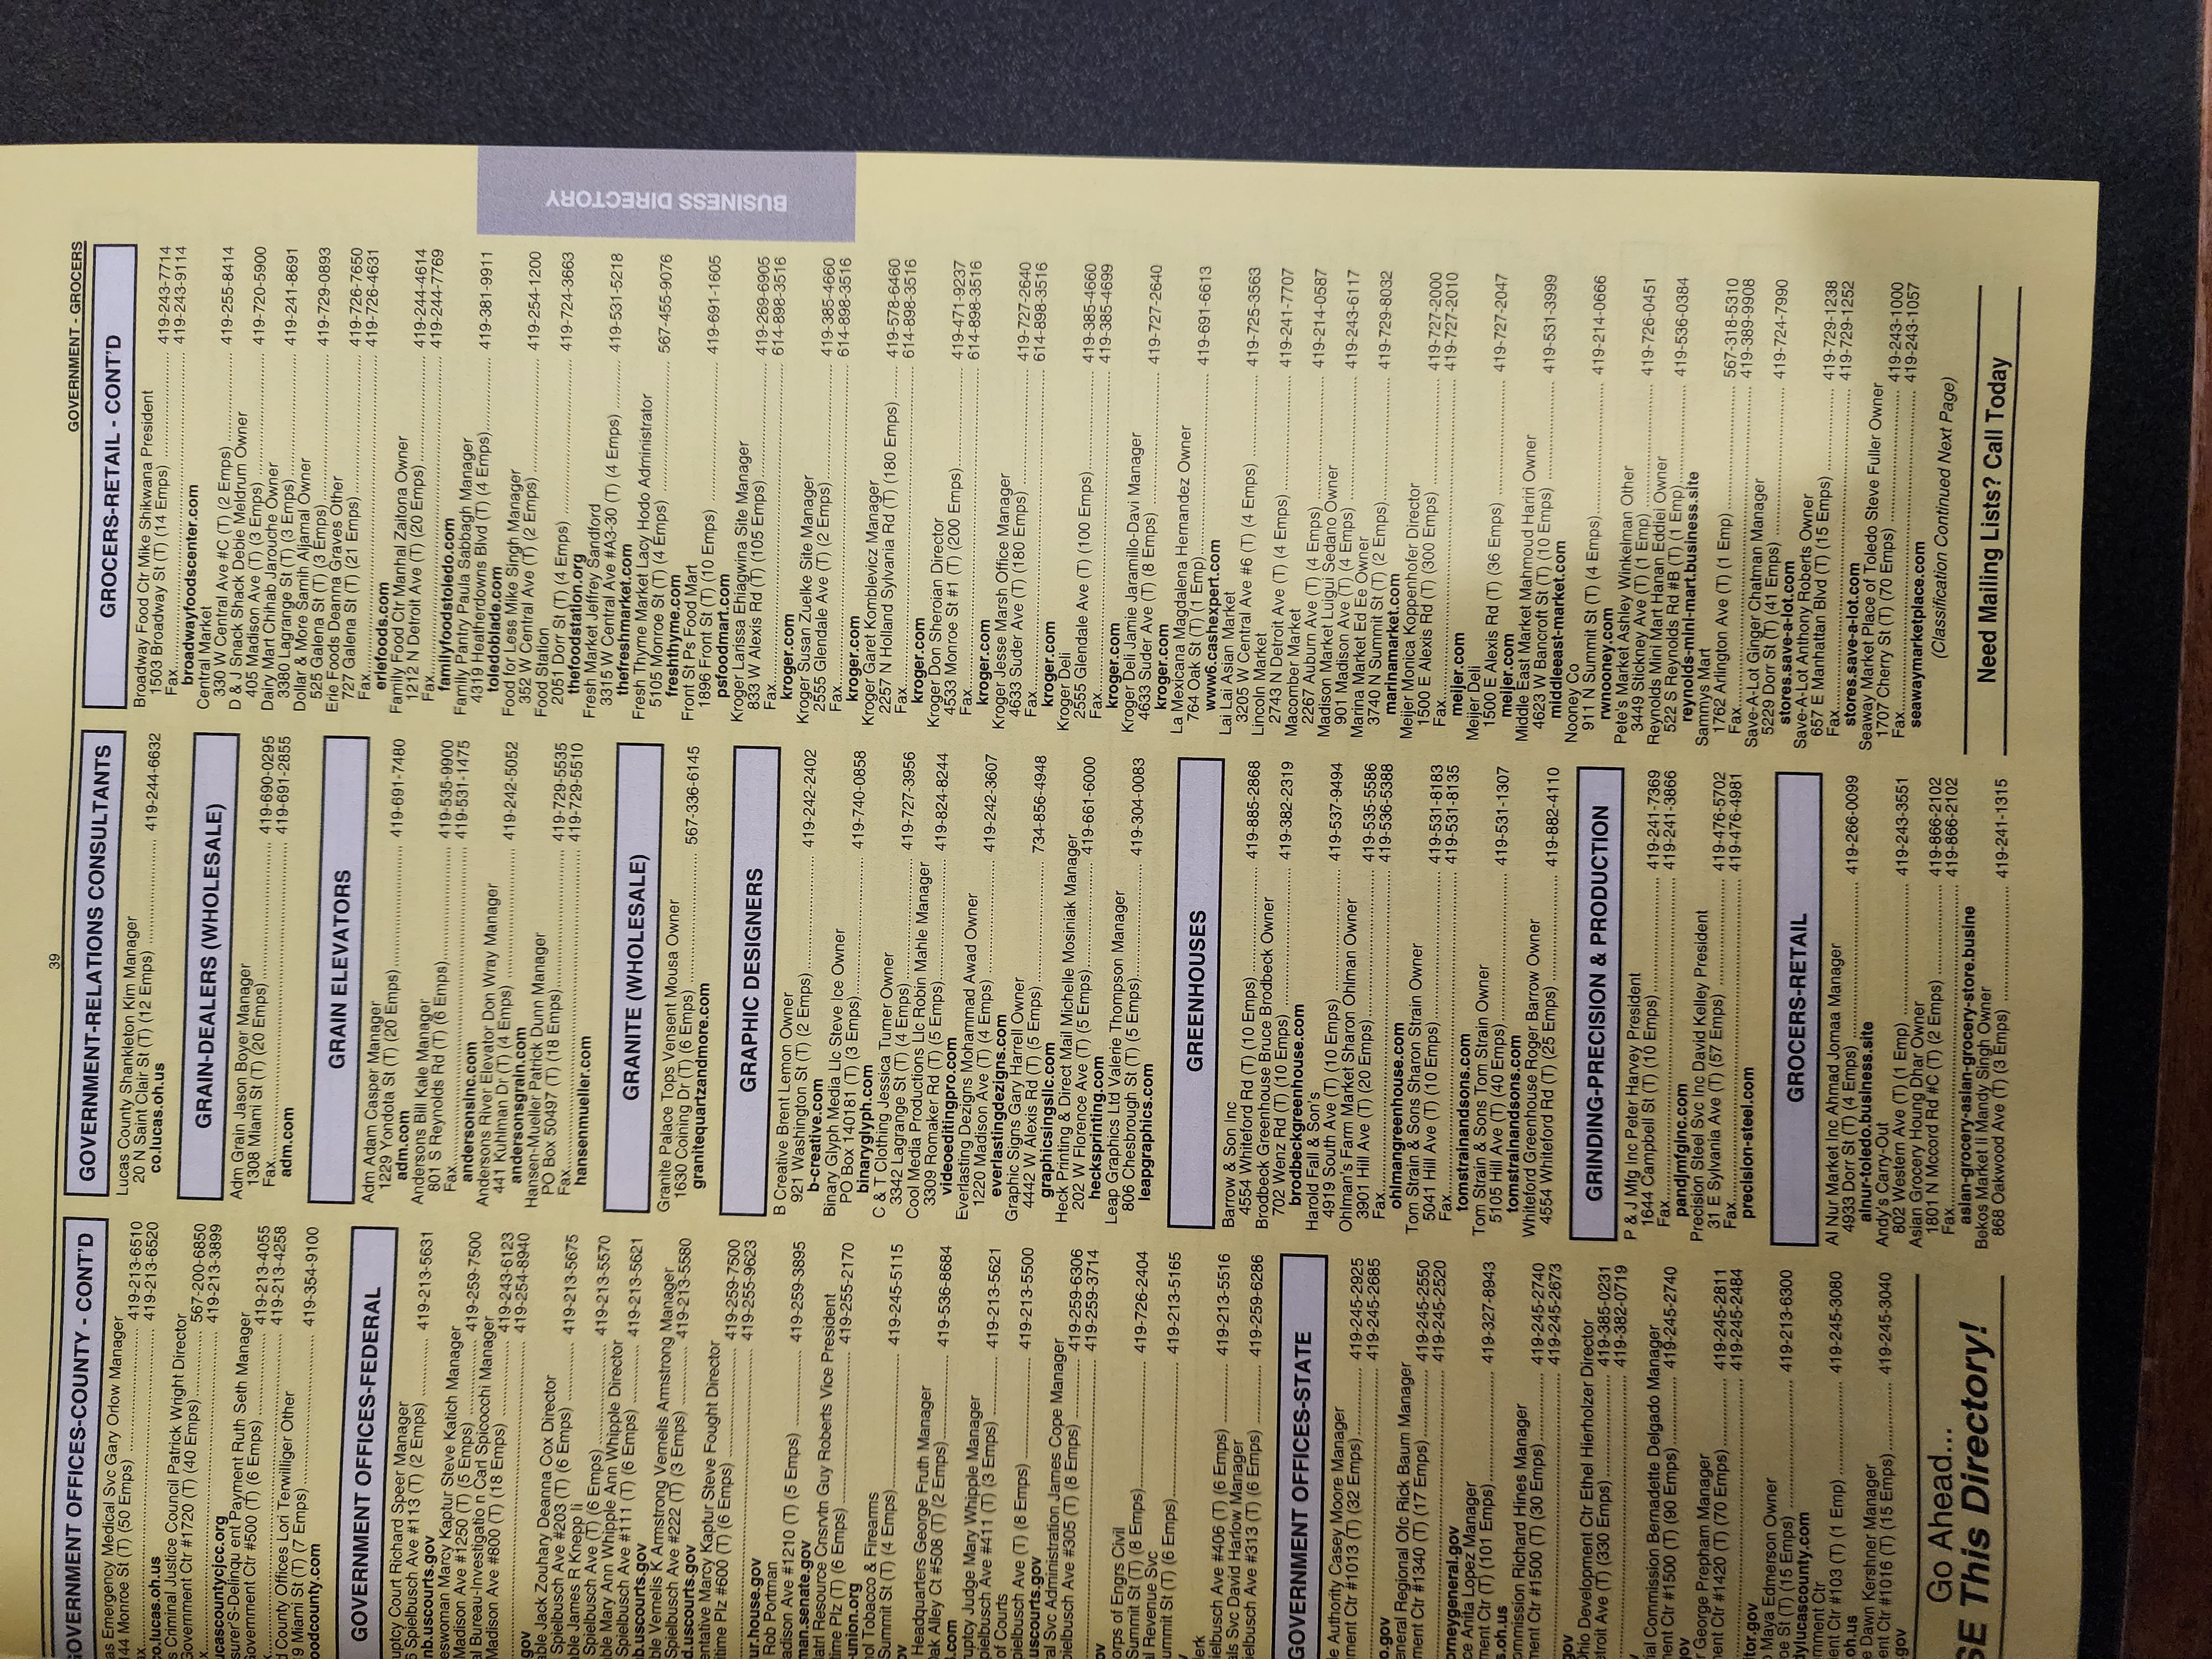 39
GOVERNMENT - GROCERS
GOVERNMENT OFFICES-COUNTY - CONT'D
Emergency Medical Svc Gary Orlow Manager
Monroe St (T) (50 Emps) 419-213-6510
419-213-6520
co.lucas.oh.us
Criminal Justice Council Patrick Wright Director
Government Ctr #1720 (T) (40 Emps) 567-200-6850
419-213-3899
lucascountycjcc.org
Payment Ruth Seth Manager
Government Ctr #500 (T) (6 Emps) 419-213-4055
419-213-4258
County Offices Lori Terwilliger Other
Miami St (T) (7 Emps) 419-354-9100
GOVERNMENT OFFICES-FEDERAL
Court Richard Speer Manager
Spielbusch Ave #113 (T) (2 Emps) 419-213-5631
Marcy Kaptur Steve Katich Manager
Madison Ave #1250 (T) (5 Emps) 419-259-7500
Carl Spicocchi Manager
Madison Ave #800 (T) (18 Emps) 419-243-6123
419-254-8940
Jack Zouhary Deanna Cox Director
Spielbusch Ave #203 (T) (6 Emps) 419-213-5675
James R Knepp Ii
Spielbusch Ave (T) (6 Emps) 419-213-5570
Mary Ann Whipple Ann Whipple Director
Spielbusch Ave #111 (T) (6 Emps) 419-213-5621
Vernelis K Armstrong Vernelis Armstrong Manager
Spielbusch Ave #222 (T) (3 Emps) 419-213-5580
Marcy Kaptur Steve Fought Director
Plz #600 (T) (6 Emps) 419-259-7500
419-255-9623
Rob Portman
Ave #1210 (T) (5 Emps) 419-259-3895
Resource Cnsrvtn Guy Roberts Vice President
Plz (T) (6 Emps) 419-255-2170
Tobacco & Firearms
Summit St (T) (4 Emps) 419-245-5115
Headquarters George Fruth Manager
Alley Ct #508 (T) (2 Emps) 419-536-8684
Judge Mary Whipple Manager
Ave #411 (T) (3 Emps) 419-213-5621
of Courts
Ave (T) (8 Emps) 419-213-5500
uscourts.gov
Svc Administration James Cope Manager
Ave #305 (T) (8 Emps) 419-259-6306
419-259-3714
of Engrs Civil
Summit St (T) (8 Emps) 419-726-2404
Revenue Svc
Summit St (T) (6 Emps) 419-213-5165
Ave #406 (T) (6 Emps) 419-213-5516
Svc David Harlow Manager
Ave #313 (T) (6 Emps) 419-259-6286
GOVERNMENT OFFICES-STATE
Authority Casey Moore Manager
Ctr #1013 (T) (32 Emps) 419-245-2925
419-245-2685
Regional Ofc Rick Baum Manager
Ctr #1340 (T) (17 Emps) 419-245-2550
419-245-2520
Anita Lopez Manager
Ctr (T) (101 Emps) 419-327-8943
Richard Hines Manager
Ctr #1500 (T) (30 Emps) 419-245-2740
419-245-2673
Development Ctr Ethel Hierholzer Director
Ave (T) (330 Emps) 419-385-0231
419-382-0719
Commission Bernadette Delgado Manager
Ctr #1500 (T) (90 Emps) 419-245-2740
George Prepham Manager
Ctr #1420 (T) (70 Emps) 419-245-2811
419-245-2484
Maya Edmerson Owner
St (T) (15 Emps) 419-213-6300
Ctr #103 (T) (1 Emp) 419-245-3080
Dawn Kershner Manager
Ctr #1016 (T) (15 Emps) 419-245-3040
Go Ahead...
This Directory!
GOVERNMENT-RELATIONS CONSULTANTS
Lucas County Shankleton Kim Manager
20 N Saint Clair St (T) (12 Emps) 419-244-6632
co.lucas.oh.us
GRAIN-DEALERS (WHOLESALE)
Adm Grain Jason Boyer Manager
1308 Miami St (T) (20 Emps) 419-690-0295
Fax 419-691-2855
adm.com
GRAIN ELEVATORS
Adm Adam Casper Manager
1229 Yondota St (T) (20 Emps) 419-691-7480
adm.com
Andersons Bill Kale Manager
801 S Reynolds Rd (T) (6 Emps) 419-535-9900
Fax 419-531-1475
andersonsinc.com
Andersons River Elevator Don Wray Manager
441 Kuhlman Dr (T) (4 Emps) 419-242-5052
andersonsgrain.com
Hansen-Mueller Patrick Dunn Manager
PO Box 50497 (T) (18 Emps) 419-729-5535
Fax 419-729-5510
hansenmueller.com
GRANITE (WHOLESALE)
Granite Palace Tops Vensent Mousa Owner
1630 Coining Dr (T) (6 Emps) 567-336-6145
granitequartzandmore.com
GRAPHIC DESIGNERS
B Creative Brent Lemon Owner
921 Washington St (T) (2 Emps) 419-242-2402
b-creative.com
Binary Glyph Media Llc Steve Ice Owner
PO Box 140181 (T) (3 Emps) 419-740-0858
binaryglyph.com
C & T Clothing Jessica Turner Owner
3342 Lagrange St (T) (4 Emps) 419-727-3956
Cool Media Productions Llc Robin Mahle Manager
3309 Romaker Rd (T) (5 Emps) 419-824-8244
videoeditingpro.com
Everlasting Dezigns Mohammad Awad Owner
1220 Madison Ave (T) (4 Emps) 419-242-3607
everlastingdezigns.com
Graphic Signs Gary Harrell Owner
4442 W Alexis Rd (T) (5 Emps) 734-856-4948
graphicsingsllc.com
Heck Printing & Direct Mail Michelle Mosiniak Manager
202 W Florence Ave (T) (5 Emps) 419-661-6000
hecksprinting.com
Leap Graphics Ltd Valerie Thompson Manager
806 Chesbrough St (T) (5 Emps) 419-304-0083
leapgraphics.com
GREENHOUSES
Barrow & Son Inc
4554 Whiteford Rd (T) (10 Emps) 419-885-2868
Brodbeck Greenhouse Bruce Brodbeck Owner
702 Wenz Rd (T) (10 Emps) 419-382-2319
brodbeckgreenhouse.com
Harold Fall & Son's
4919 South Ave (T) (10 Emps) 419-537-9494
Ohlman's Farm Market Sharon Ohlman Owner
3901 Hill Ave (T) (20 Emps) 419-535-5586
Fax 419-536-5388
ohlmangreenhouse.com
Tom Strain & Sons Sharon Strain Owner
5041 Hill Ave (T) (10 Emps) 419-531-8183
Fax 419-531-8135
tomstrainandsons.com
Tom Strain & Sons Tom Strain Owner
5105 Hill Ave (T) (40 Emps) 419-531-1307
tomstrainandsons.com
Whiteford Greenhouse Roger Barrow Owner
4554 Whiteford Rd (T) (25 Emps) 419-882-4110
GRINDING-PRECISION & PRODUCTION
P & J Mfg Inc Peter Harvey President
1644 Campbell St (T) (10 Emps) 419-241-7369
Fax 419-241-3866
pandjmfginc.com
Precision Steel Svc Inc David Kelley President
31 E Sylvania Ave (T) (57 Emps) 419-476-5702
Fax 419-476-4981
precision-steel.com
GROCERS-RETAIL
Al Nur Market Inc Ahmad Jomaa Manager
4933 Dorr St (T) (4 Emps) 419-266-0099
alnur-toledo.business.site
Andy's Carry-Out
802 Western Ave (T) (1 Emp) 419-243-3551
Asian Grocery Houng Dhar Owner
1801 N Mccord Rd #C (T) (2 Emps) 419-866-2102
Fax 419-866-2102
asian-grocery-asian-grocery-store.busine
Bekos Market Ii Mandy Singh Owner
868 Oakwood Ave (T) (3 Emps) 419-241-1315
GROCERS-RETAIL - CONT'D
Broadway Food Ctr Mike Shikwana President
1503 Broadway St (T) (14 Emps) 419-243-7714
Fax 419-243-9114
broadwayfoodscenter.com
Central Market
330 W Central Ave #C (T) (2 Emps) 419-255-8414
D & J Snack Shack Debie Meldrum Owner
405 Madison Ave (T) (3 Emps) 419-720-5900
Dairy Mart Chilhab Jarouche Owner
3380 Lagrange St (T) (3 Emps) 419-241-8691
Dollar & More Samih Aljamal Owner
525 Galena St (T) (3 Emps) 419-729-0893
Erie Foods Deanna Graves Other
727 Galena St (T) (21 Emps) 419-726-7650
Fax 419-726-4631
eriefoods.com
Family Food Ctr Manhal Zaitona Owner
1212 N Detroit Ave (T) (20 Emps) 419-244-4614
Fax 419-244-7769
familyfoodstoledo.com
Family Pantry Paula Sabbagh Manager
4319 Heatherdowns Blvd (T) (4 Emps) 419-381-9911
toledoblade.com
Food for Less Mike Singh Manager
352 W Central Ave (T) (2 Emps) 419-254-1200
Food Station
2051 Dorr St (T) (4 Emps) 419-724-3663
thefoodstation.org
Fresh Market Jeffrey Sandford
3315 W Central Ave #A3-30 (T) (4 Emps) 419-531-5218
thefreshmarket.com
Fresh Thyme Market Lacy Hodo Administrator
5105 Monroe St (T) (4 Emps) 567-455-9076
freshthyme.com
Front St Ps Food Mart
1896 Front St (T) (10 Emps) 419-691-1605
psfoodmart.com
Kroger Larissa Ehiagwina Site Manager
833 W Alexis Rd (T) (105 Emps) 419-269-6905
Fax 614-898-3516
kroger.com
Kroger Susan Zuelke Site Manager
2555 Glendale Ave (T) (2 Emps) 419-385-4660
Fax 614-898-3516
kroger.com
Kroger Garet Komblevicz Manager
2257 N Holland Sylvania Rd (T) (180 Emps) 419-578-6460
Fax 614-898-3516
kroger.com
Kroger Don Sheroian Director
4533 Monroe St #1 (T) (200 Emps) 419-471-9237
Fax 614-898-3516
kroger.com
Kroger Jesse Marsh Office Manager
4633 Suder Ave (T) (180 Emps) 419-727-2640
Fax 614-898-3516
kroger.com
Kroger Deli
2555 Glendale Ave (T) (100 Emps) 419-385-4660
Fax 419-385-4699
kroger.com
Kroger Deli Jamie Jaramillo-Davi Manager
4633 Suder Ave (T) (8 Emps) 419-727-2640
kroger.com
La Mexicana Magdalena Hernandez Owner
764 Oak St (T) (1 Emp) 419-691-6613
www6.cashexpert.com
Lai Lai Asian Market
3205 W Central Ave #6 (T) (4 Emps) 419-725-3563
Lincoln Market
2743 N Detroit Ave (T) (4 Emps) 419-241-7707
Macomber Market
2267 Auburn Ave (T) (4 Emps) 419-214-0587
Madison Market Luigui Sedano Owner
901 Madison Ave (T) (4 Emps) 419-243-6117
Marina Market Ed Ee Owner
3740 N Summit St (T) (2 Emps) 419-729-8032
marinamarket.com
Meijer Monica Koppenhofer Director
1500 E Alexis Rd (T) (300 Emps) 419-727-2000
Fax 419-727-2010
meijer.com
Meijer Deli
1500 E Alexis Rd (T) (36 Emps) 419-727-2047
meijer.com
Middle East Market Mahmoud Hariri Owner
4623 W Bancroft St (T) (10 Emps) 419-531-3999
middleeast-market.com
Nooney Co
911 N Summit St (T) (4 Emps) 419-214-0666
rwnooney.com
Pete's Market Ashley Winkelman Other
3449 Stickney Ave (T) (1 Emp) 419-726-0451
Reynolds Mini Mart Hanan Eddiei Owner
522 S Reynolds Rd #B (T) (1 Emp) 419-536-0384
reynolds-mini-mart.business.site
Sammys Mart
1762 Arlington Ave (T) (1 Emp) 567-318-5310
Fax 419-389-9908
Save-A-Lot Ginger Chatman Manager
5229 Dorr St (T) (41 Emps) 419-724-7990
stores.save-a-lot.com
Save-A-Lot Anthony Roberts Owner
657 E Manhattan Blvd (T) (15 Emps) 419-729-1238
Fax 419-729-1252
stores.save-a-lot.com
Seaway Market Place of Toledo Steve Fuller Owner
1707 Cherry St (T) (70 Emps) 419-243-1000
Fax 419-243-1057
seawaymarketplace.com
(Classification Continued Next Page)
Need Mailing Lists? Call Today
BUSINESS DIRECTORY